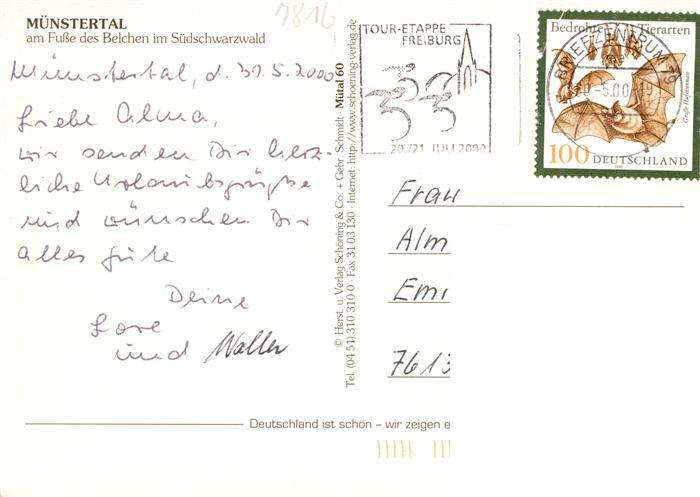 7816
MÜNSTERTAL
am Fuße des Belchen im Südschwarzwald
Münstertal, d. 31.5.2000
Liebe Alma,
wir senden Dir herz-
liche Urlaubsgrüße
und wünschen Dir
alles Gute
Deine
Lore
und Walter
© Herst. u. Verlag Schöning & Co. + Gebr. Schmidt · Mütal 60
Tel. (04 51) 310 310 0 · Fax 31 03 130 · Internet: http://www.schoening-verlag.de
TOUR-ETAPPE
FREIBURG
20./21. JULI 2000
Bedrohte Tierarten
BRIEFZENTRUM 79
-5.00
19
Große Hufeisennase
100 DEUTSCHLAND
Frau
Alm
Emi
7613
Deutschland ist schön – wir zeigen e